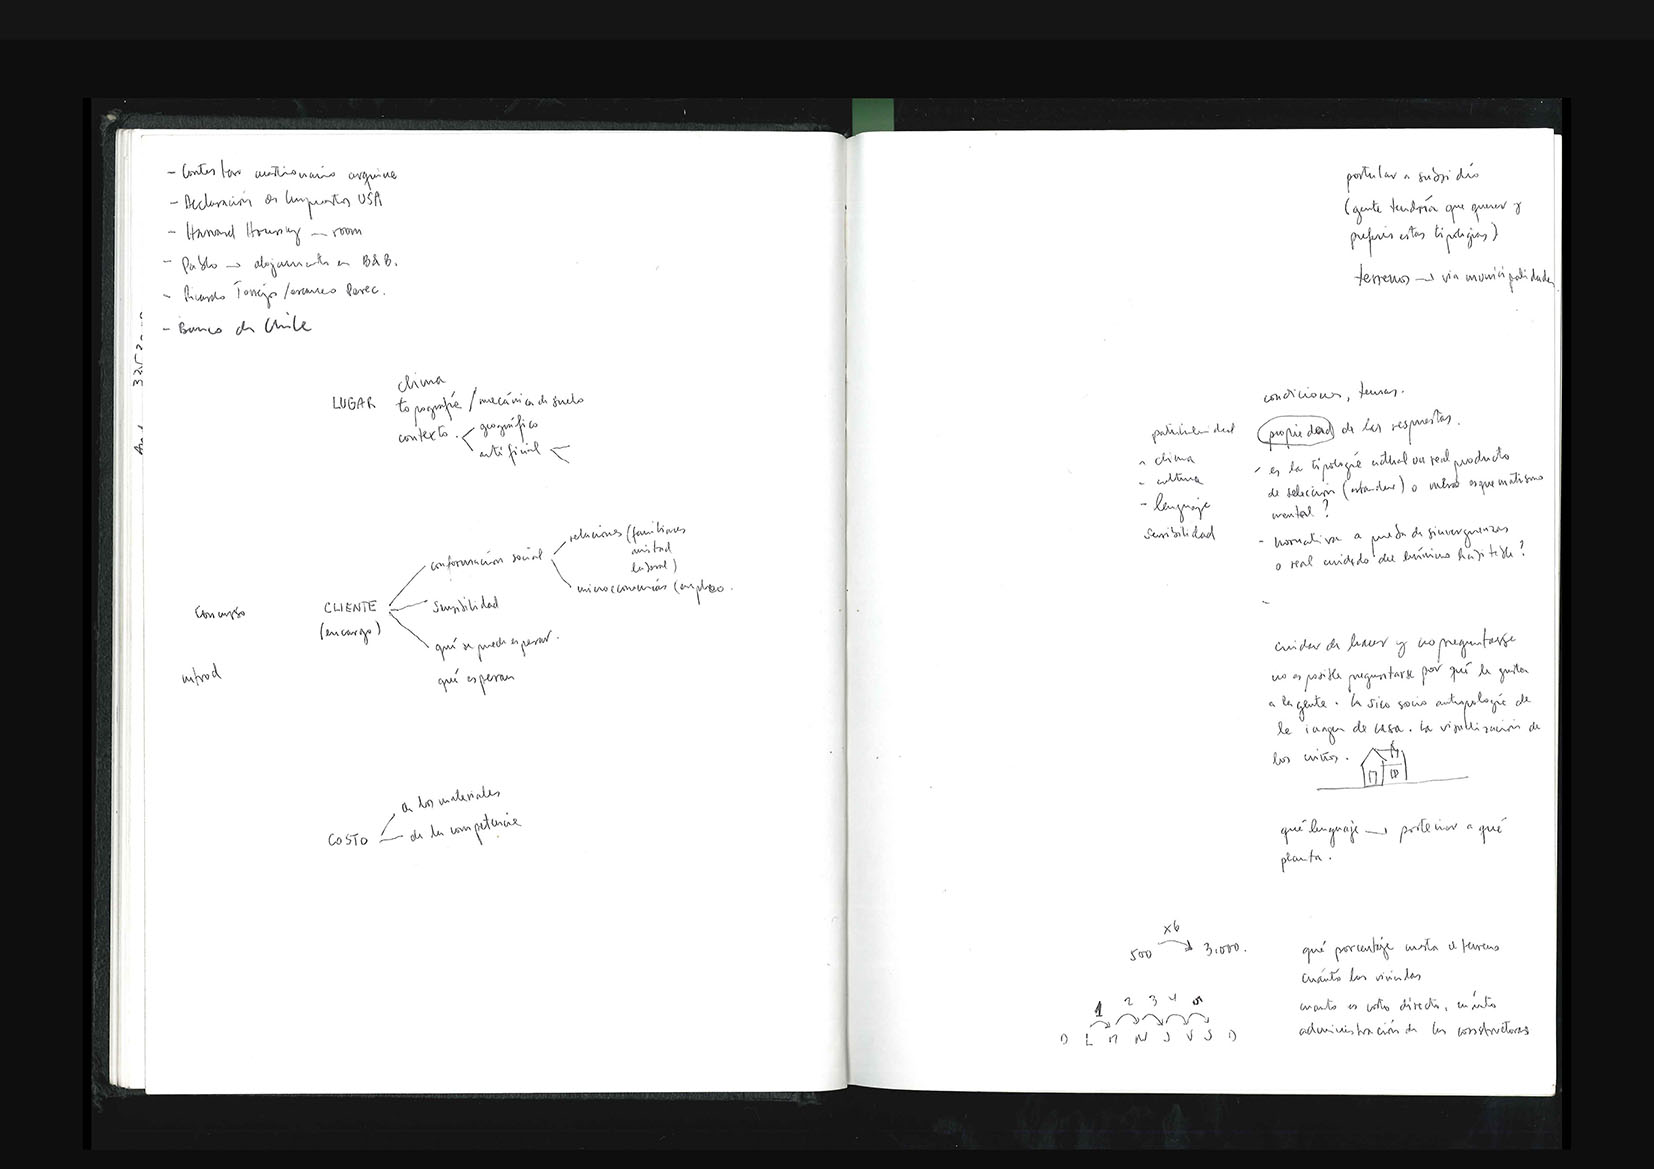 - Contestar cuestionario arquine
- Declaración de Impuestos USA
- Harvard Housing — room
- Pablo → alojamiento en B&B.
- Ricardo Torrejón / avances Perec.
- Banco de Chile
LUGAR
clima
topografía / mecánica de suelo
contexto
geográfico
artificial
Concurso
introd
CLIENTE
(encargo)
conformación social
relaciones (familiares
amistad
laboral)
microeconomías (empleo.
sensibilidad
qué se puede esperar.
qué esperan
COSTO
de los materiales
de la competencia
postular a subsidio
(gente tendría que querer y
preferir estas tipologías)
terrenos → vía municipalidades
particularidad
- clima
- cultura
- lenguaje
sensibilidad
condiciones, temas.
propiedad de las respuestas.
- es la tipología actual un real producto
de selección (estándar) o mero esquematismo
mental?
- normativa a prueba de sinvergüenzas
o real cuidado del mínimo habitable?
-
cuidar de hacer y no preguntarse
no es posible preguntarse por qué le gusta
a la gente. la sico socio antropología de
la imagen de casa. La visualización de
los niños.
qué lenguaje → posterior a qué
planta.
x6
500 → 3.000.
1 2 3 4 5
D L M M J V S D
qué porcentaje cuesta el terreno
cuánto las viviendas
cuanto es costo directo, cuánto
administración de las constructoras